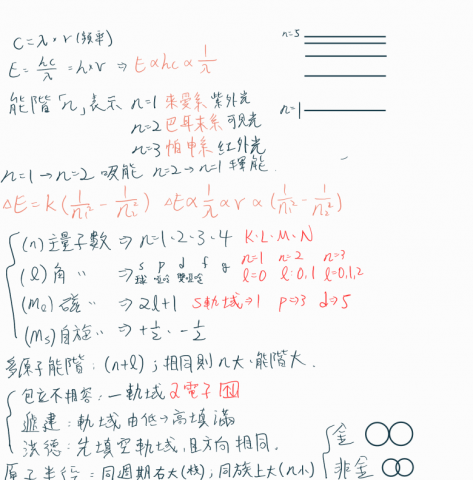 C=λ×ν (頻率)
n=5
E=hc/λ=h×ν ⇒ E∝hc∝1/λ
能階「n」表示 n=1 來曼系 紫外光
n=1
n=2 巴耳末系 可見光
n=3 帕申系 紅外光
n=1→n=2 吸能 n=2→n=1 釋能.
△E=k(1/n₁²-1/n₂²) △E∝1/λ∝ν∝(1/n₁²-1/n₂²)
(n)主量子數 ⇒ n=1、2、3、4 K.L.M.N
s p d f g n=1 n=2 n=3
(l)角 〃 ⇒ l=0 l:0,1 l=0,1,2
(ml)磁 〃 ⇒ 2l+1 s軌域⇒1 p⇒3 d⇒5
(ms)自旋 〃 ⇒ +1/2、-1/2
多原子能階:(n+l);相同則n大、能階大.
包立不相容:一軌域2電子
遞建:軌域由低→高填滿
洪德:先填空軌域,且方向相同.
金
原子半徑:同週期右大(核);同族上大(n小)
非金